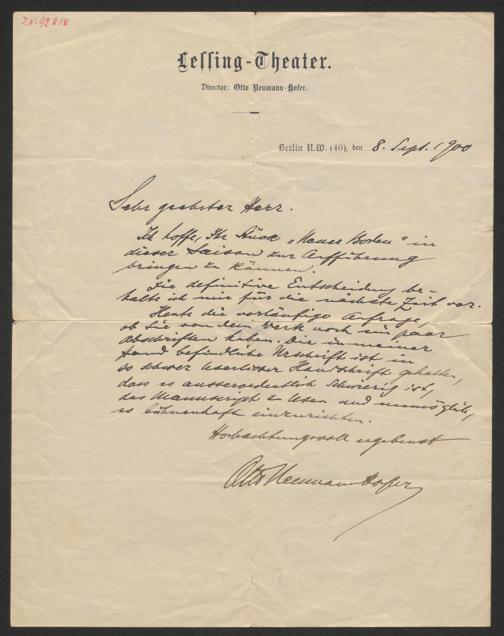 J.N. 92818
Lessing-Theater.
Director: Otto Neumann-Hofer.
Berlin N.W. (40), den 8. Sept. 1900
Sehr geehrter Herr.
Ich hoffe, Ihr Stück „Neuer Boden“ in
dieser Saison zur Aufführung
bringen zu können.
Die definitive Entscheidung be-
halte ich mir für die nächste Zeit vor.
Heute die vorläufige Anfrage
ob Sie von dem Werk noch ein paar
Abschriften haben. Die in meiner
Hand befindliche Urschrift ist in
so schwer leserlicher Handschrift gehalten,
dass es ausserordentlich schwierig ist,
das Manuscript zu lesen und unmöglich,
es bühnenhaft einzurichten.
Hochachtungsvoll ergebenst
Otto Neumann-Hofer